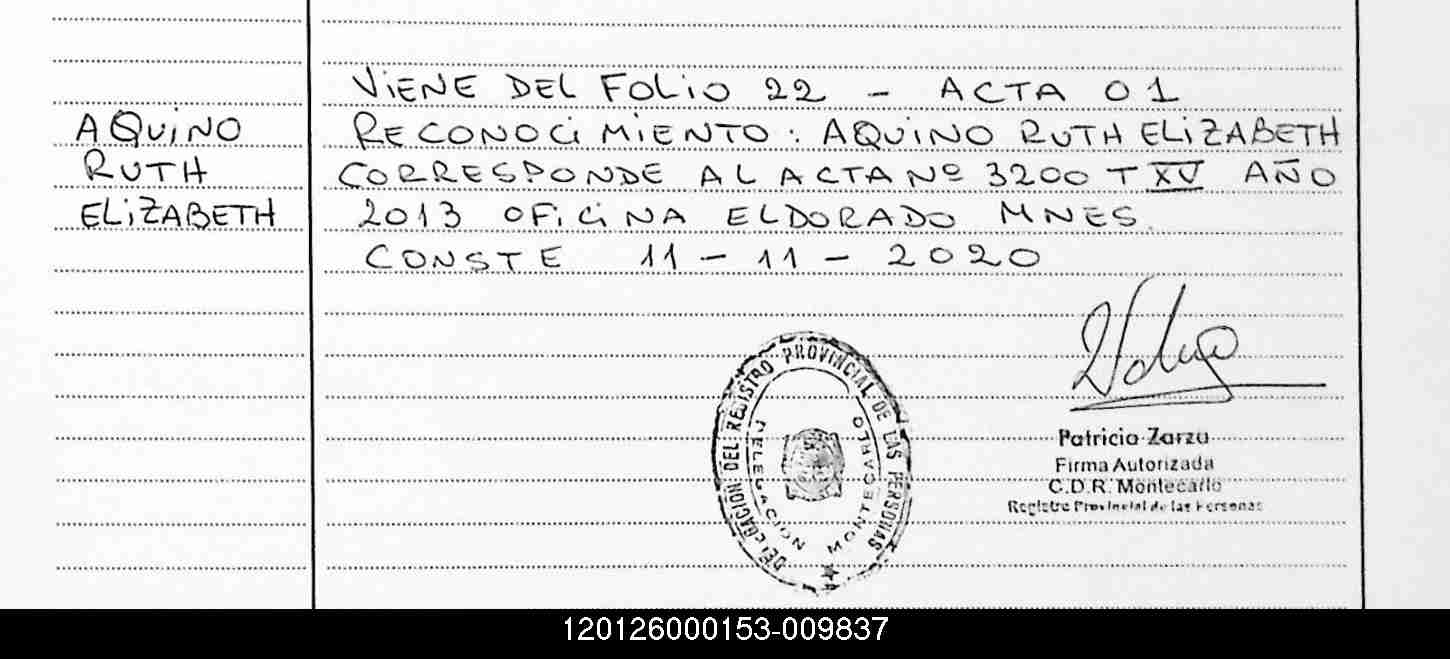 AQUINO
RUTH
ELIZABETH
VIENE DEL FOLIO 22 - ACTA 01
RECONOCIMIENTO: AQUINO RUTH ELIZABETH
CORRESPONDE AL ACTA Nº 3200 T XV AÑO
2013 OFICINA ELDORADO MNES.
CONSTE 11-11-2020
DELEGACION DEL REGISTRO PROVINCIAL DE LAS PERSONAS
DELEGACION MONTECARLO
Patricia Zarza
Firma Autorizada
C.D.R. Montecarlo
Registro Provincial de las Personas
120126000153-009837